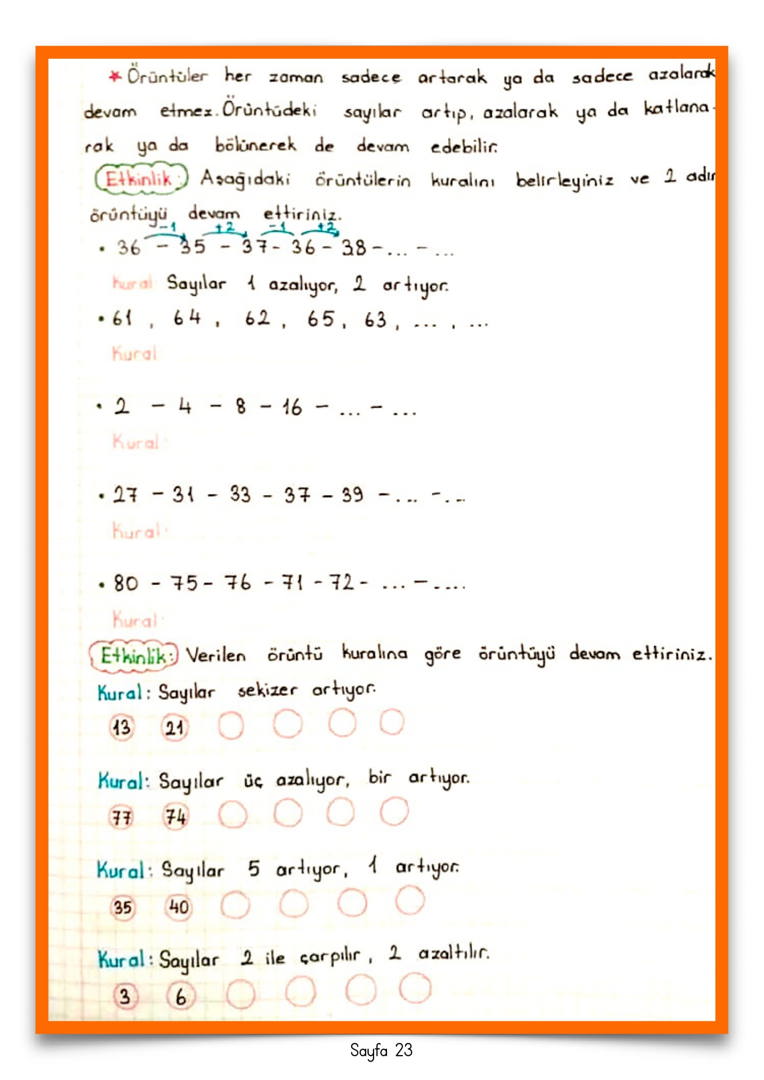 * Örüntüler her zaman sadece artarak ya da sadece azalarak
devam etmez. Örüntüdeki sayılar artıp, azalarak ya da katlana-
rak ya da bölünerek de devam edebilir.
Etkinlik: Aşağıdaki örüntülerin kuralını belirleyiniz ve 2 adım
örüntüyü devam ettiriniz.
-1 +2 -1 +2
• 36 - 35 - 37 - 36 - 38 - ... - ...
Kural: Sayılar 1 azalıyor, 2 artıyor.
• 61 , 64 , 62 , 65 , 63 , ... , ...
Kural
• 2 - 4 - 8 - 16 - ... - ...
Kural:
• 27 - 31 - 33 - 37 - 39 - ... - ...
Kural:
• 80 - 75 - 76 - 71 - 72 - ... - ....
Kural:
Etkinlik: Verilen örüntü kuralına göre örüntüyü devam ettiriniz.
Kural: Sayılar sekizer artıyor.
13 21
Kural: Sayılar üç azalıyor, bir artıyor.
77 74
Kural: Sayılar 5 artıyor, 1 artıyor.
35 40
Kural: Sayılar 2 ile çarpılır, 2 azaltılır.
3 6
Sayfa 23